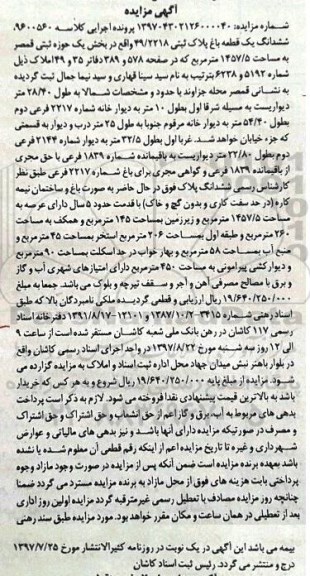 آگهی مزایده
شماره مزایده: ۱۳۹۷۰۴۳۰۲۱۲۶۰۰۰۰۴۰ پرونده اجرایی کلاسه ۹۶۰۰۵۶۰.
ششدانگ یک قطعه باغ پلاک ثبتی ۴۹/۲۲۱۸ واقع در بخش یک حوزه ثبتی قمصر
به مساحت ۱۴۵۷/۵ مترمربع که در صفحه ۵۷۸ و ۳۸۹ دفاتر ۳۵ و ۴۹ املاک ذیل
شماره ۵۱۹۲ و ۶۲۳۸ بترتیب به نام سید سینا قهاری و سید نیما جمال ثبت گردیده
به نشانی قمصر محله جزاوند با حدود و مشخصات شمالا به طول ۲۸/۴۰ متر
دیواریست به مسیله شرقا اول بطول ۱۰ متر به دیوار خانه شماره ۲۲۱۷ فرعی دوم
بطول ۵۴/۴۰ متر به دیوار خانه مرقوم جنوبا به طول ۲۵ متر درب و دیوار به قسمتی
که جزء خیابان خواهد شد. غربا اول بطول ۳۲/۵ متر به دیوار شماره ۲۱۴۴ فرعی
دوم بطول ۲۲/۸۰ متر دیواریست به باقیمانده شماره ۱۸۳۹ فرعی با حق مجری
از باقیمانده ۱۸۳۹ فرعی و گواهی مجری برای باغ شماره ۲۲۱۷ فرعی طبق نظر
کارشناس رسمی ششدانگ پلاک فوق در حال حاضر به صورت باغ و ساختمان نیمه
کاره (در حد سفت کاری و بدون گچ و خاک) با قدمت حدود ۵ سال دارای عرصه به
مساحت ۱۴۵۷/۵ مترمربع و زیرزمین بمساحت ۱۴۵ مترمربع و همکف به مساحت
۲۶۰ مترمربع و طبقه اول بمساحت ۲۰۶ مترمربع استخر بمساحت ۴۵ مترمربع و
منبع آب بمساحت ۵۸ مترمربع و بهار خواب در حد اسکلت بمساحت ۹۰ مترمربع
و دیوار کشی پیرامونی به مساحت ۴۵۰ مترمربع دارای امتیازهای شهری آب و گاز
و برق با مصالح مصرفی آهن و آجر و سقف تیرچه و بلوک می باشد. جمعا به مبلغ
۱۹/۶۴۰/۲۵۰/۰۰۰ ریال ارزیابی و قطعی گردیده ملکی نامبردگان بالا که طبق
اسناد رهنی شماره ۳۴۱۵-۱۳۸۷/۱۰/۲ و ۱۲۱۰۱-۱۳۹۱/۸/۱۷ دفترخانه اسناد
رسمی ۱۱۷ کاشان در رهن بانک ملی شعبه کاشان مستقر شده است از ساعت ۹
الی ۱۲ روز سه شنبه مورخ ۱۳۹۷/۸/۲۲ در واحد اجرای اسناد رسمی کاشان واقع
در بلوار باهنر نبش میدان جهاد محل اداره ثبت اسناد و املاک به مزایده گزارده می
شود. مزایده از مبلغ پایه ۱۹/۶۴۰/۲۵۰/۰۰۰ ریال شروع و به هر کس که خریدار
باشد به بالاترین قیمت پیشنهادی نقدا فروخته می شود. لازم به ذکر است پرداخت
بدهی های مربوط به آب، برق و گاز اعم از حق انشعاب و حق اشتراک و حق اشتراک
و مصرف در صورتیکه مورد مزایده دارای آنها باشد و نیز بدهی های مالیاتی و عوارض
شهرداری و غیره تا تاریخ مزایده اعم از اینکه رقم قطعی آن معلوم شده یا نشده
باشد بعهده برنده مزایده است ضمن آنکه پس از مزایده در صورت وجود مازاد وجوه
پرداختی بابت هزینه های فوق از محل مازاد به برنده مزایده مسترد می گردد ضمنا
چنانچه روز مزایده مصادف با تعطیل رسمی غیرمترقبه گردد مزایده اولین روز اداری
بعد از تعطیلی در همان ساعت و مکان مقرر خواهد بود. مورد مزایده طبق سند رهنی
بیمه می باشد این آگهی در یک نوبت در روزنامه کثیرالانتشار مورخ ۱۳۹۷/۷/۲۵
درج و منتشر می گردد. رئیس ثبت اسناد کاشان